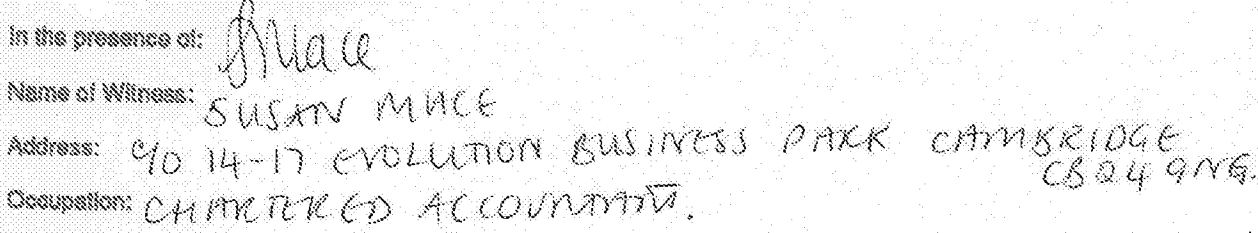 In the presence of: SMace
Name of Witness: SUSAN MACE
Address: c/o 14-17 EVOLUTION BUSINESS PARK CAMBRIDGE
CB24 9NG.
Occupation: CHARTERED ACCOUNTANT.